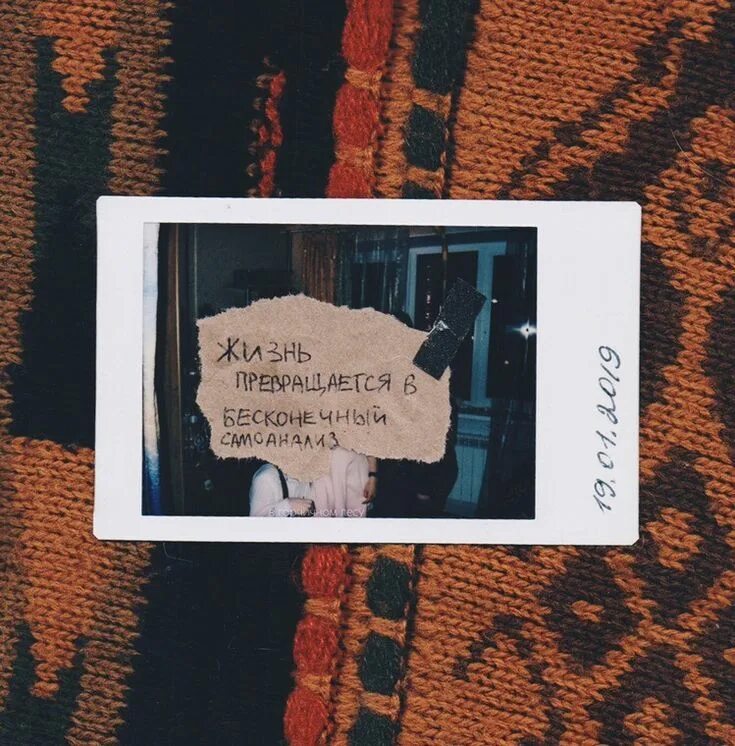 ЖИЗНЬ
ПРЕВРАЩАЕТСЯ В
БЕСКОНЕЧНЫЙ
САМОАНАЛИЗ
в горчичном лесу
19.01.2019